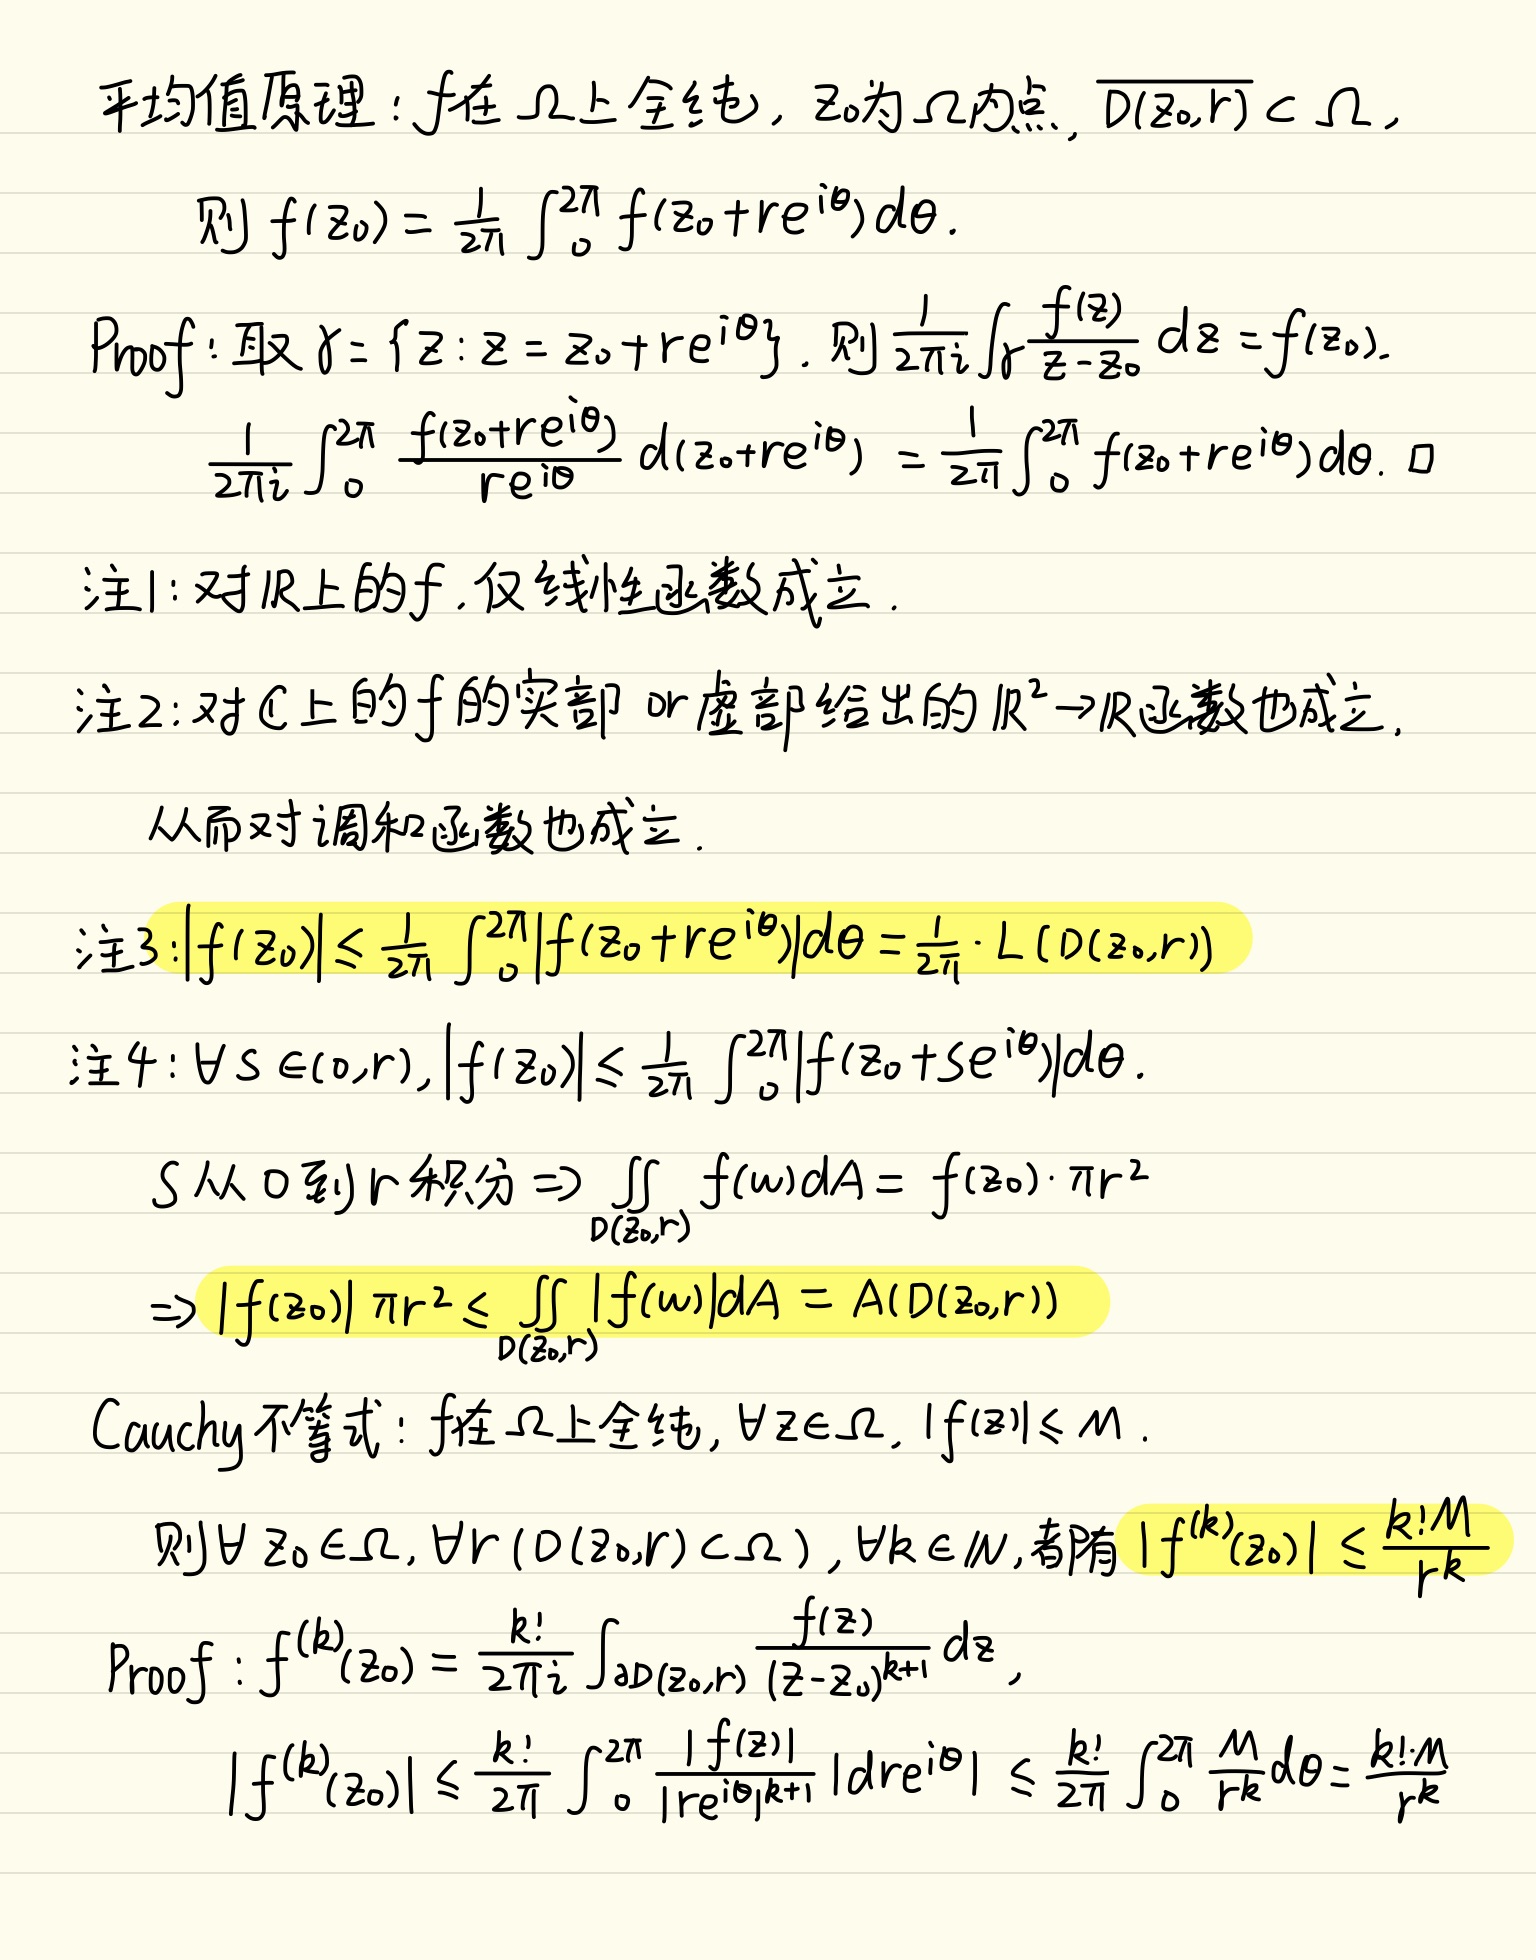 平均值原理：f在Ω上全纯，z₀为Ω内点，$\overline{D(z_0,r)}\subset\Omega$，
则 $f(z_0)=\frac{1}{2\pi}\int_0^{2\pi}f(z_0+re^{i\theta})d\theta$.
Proof：取 $\gamma=\{z:z=z_0+re^{i\theta}\}$. 则 $\frac{1}{2\pi i}\int_\gamma\frac{f(z)}{z-z_0}dz=f(z_0)$.
$\frac{1}{2\pi i}\int_0^{2\pi}\frac{f(z_0+re^{i\theta})}{re^{i\theta}}d(z_0+re^{i\theta})=\frac{1}{2\pi}\int_0^{2\pi}f(z_0+re^{i\theta})d\theta$. □
注1：对ℝ上的f，仅线性函数成立.
注2：对ℂ上的f的实部 or 虚部给出的ℝ²→ℝ函数也成立，
从而对调和函数也成立.
注3：$|f(z_0)|\le\frac{1}{2\pi}\int_0^{2\pi}|f(z_0+re^{i\theta})|d\theta=\frac{1}{2\pi}\cdot L(D(z_0,r))$
注4：$\forall s\in(0,r),|f(z_0)|\le\frac{1}{2\pi}\int_0^{2\pi}|f(z_0+se^{i\theta})|d\theta$.
s从0到r积分 $\Rightarrow\iint_{D(z_0,r)}f(w)dA=f(z_0)\cdot\pi r^2$
$\Rightarrow|f(z_0)|\pi r^2\le\iint_{D(z_0,r)}|f(w)|dA=A(D(z_0,r))$
Cauchy不等式：f在Ω上全纯，∀z∈Ω，|f(z)|≤M.
则∀z₀∈Ω，∀r(D(z₀,r)⊂Ω)，∀k∈ℕ，都有 $|f^{(k)}(z_0)|\le\frac{k!M}{r^k}$
Proof：$f^{(k)}(z_0)=\frac{k!}{2\pi i}\int_{\partial D(z_0,r)}\frac{f(z)}{(z-z_0)^{k+1}}dz$,
$|f^{(k)}(z_0)|\le\frac{k!}{2\pi}\int_0^{2\pi}\frac{|f(z)|}{|re^{i\theta}|^{k+1}}|dre^{i\theta}|\le\frac{k!}{2\pi}\int_0^{2\pi}\frac{M}{r^k}d\theta=\frac{k!\cdot M}{r^k}$